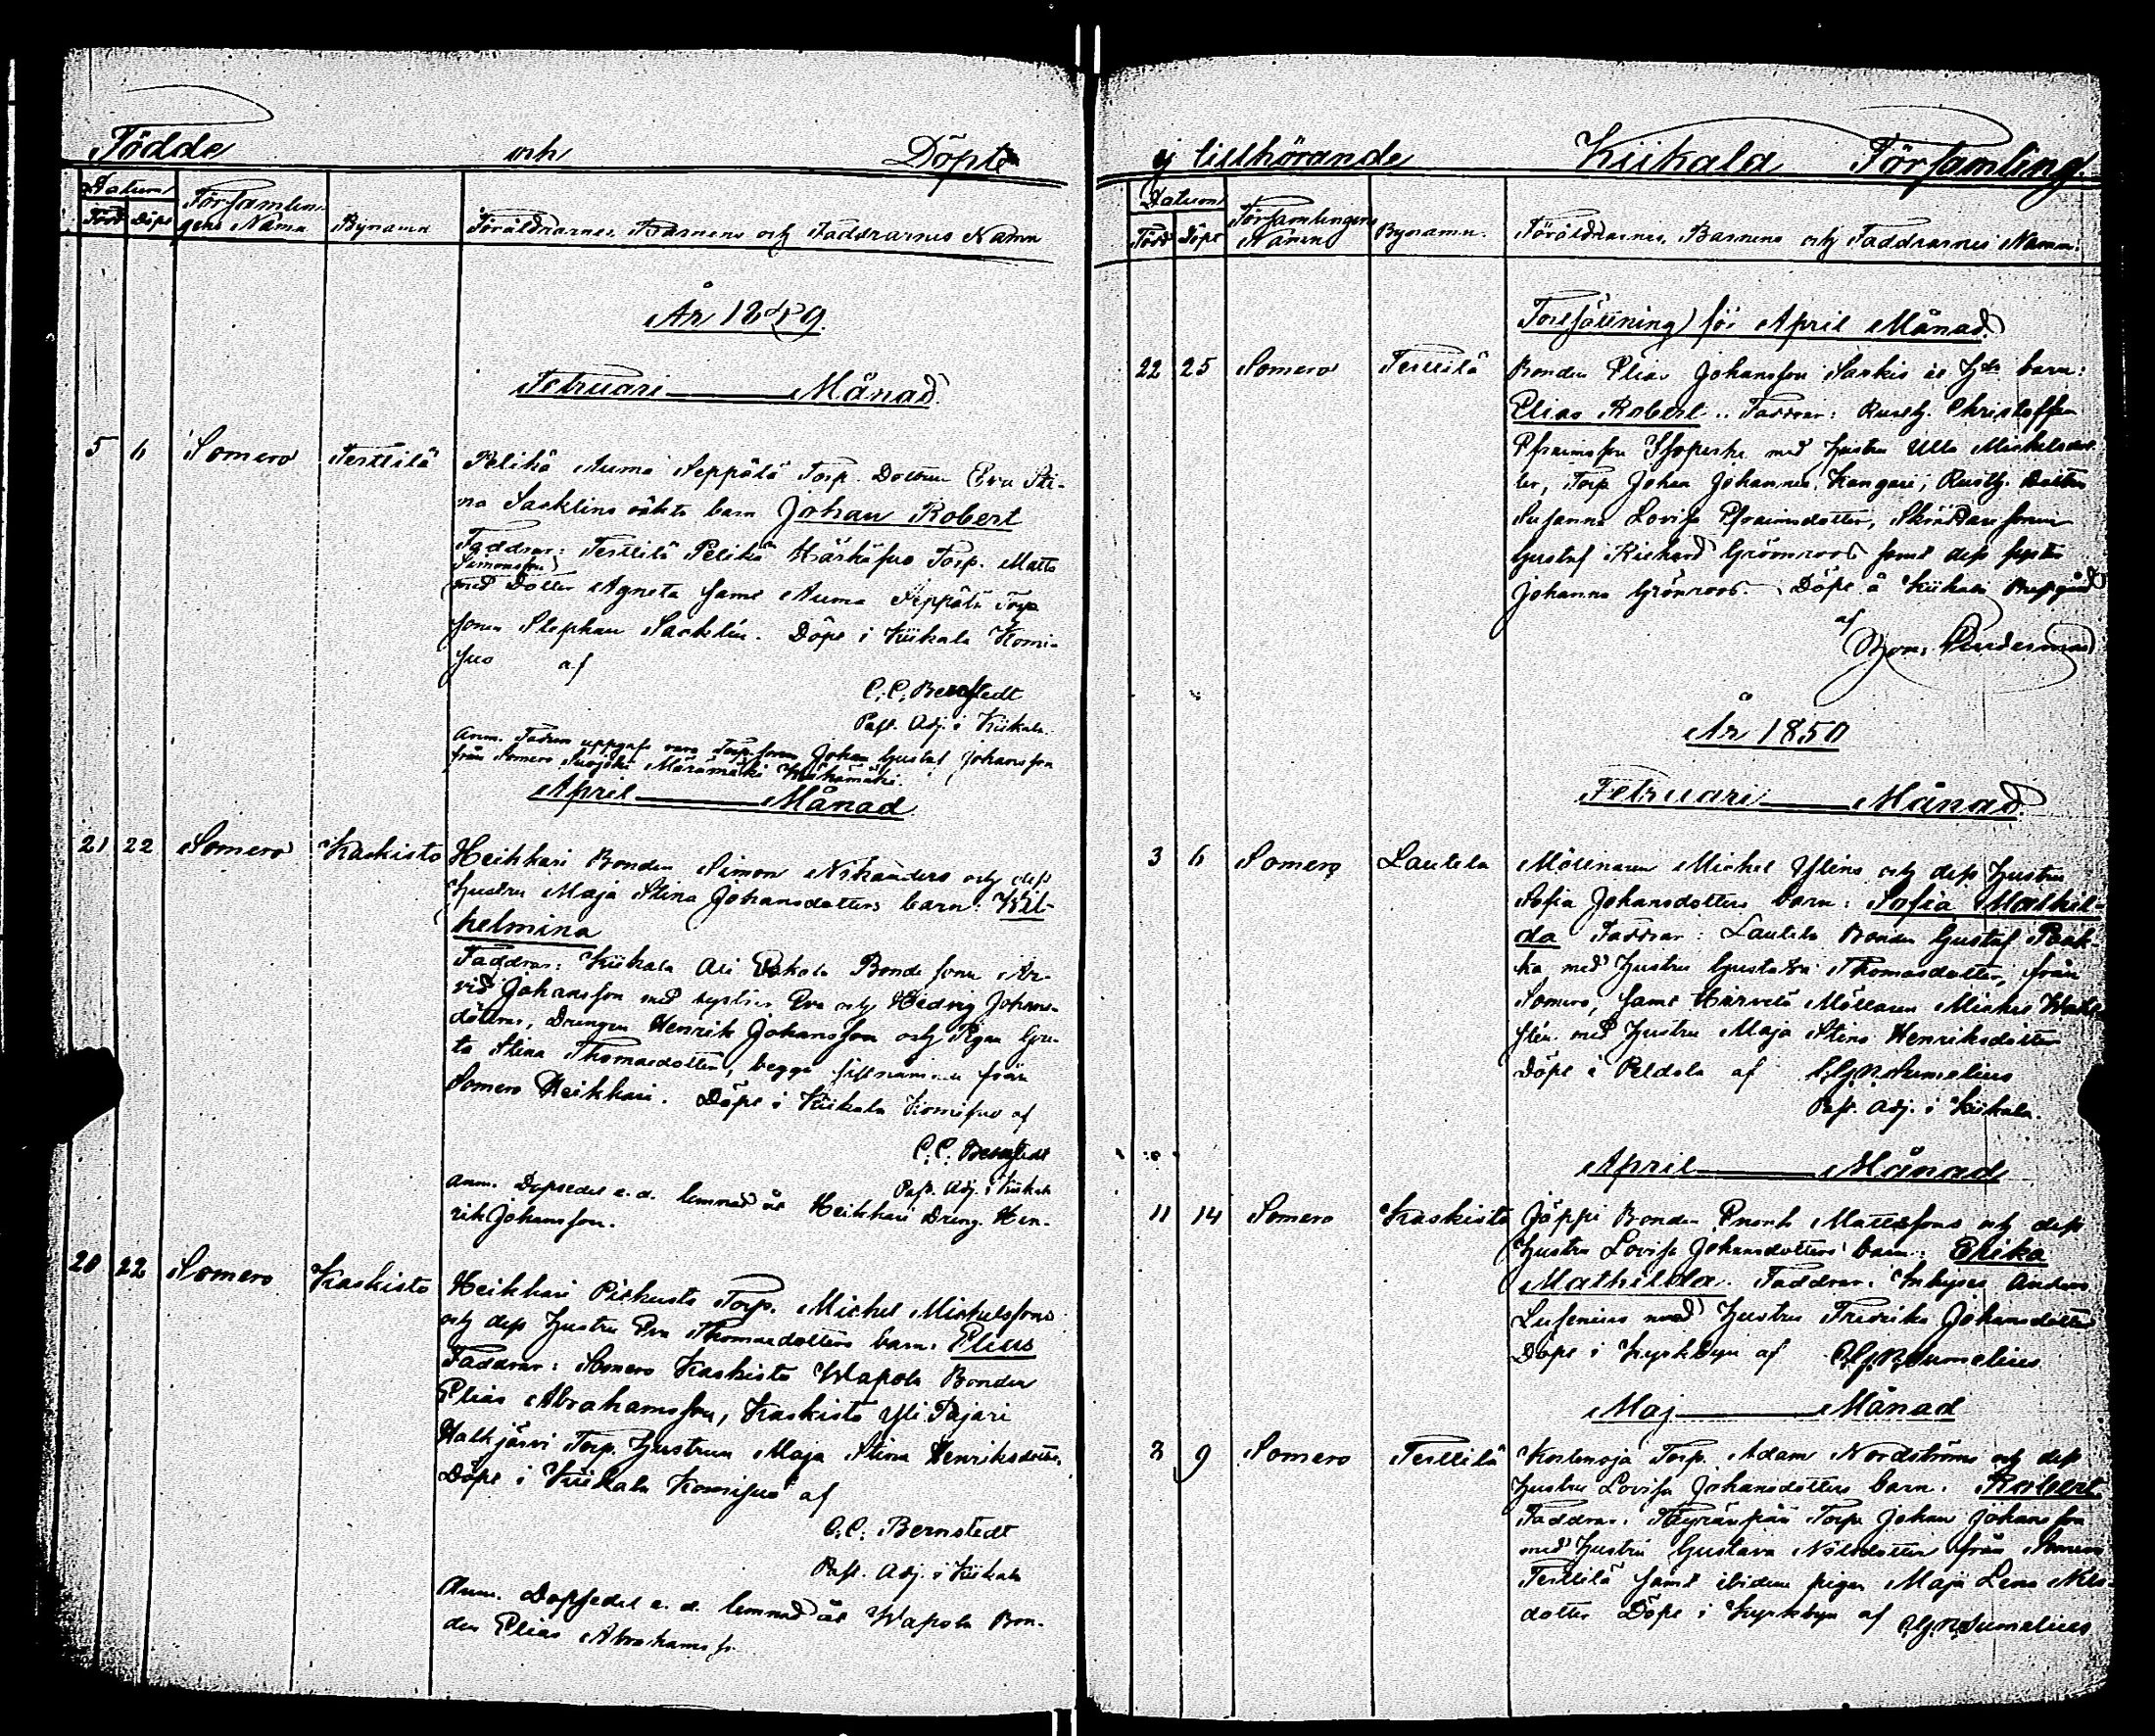 Födde och Döpte
Datum
Född Döpt
Församlin-
gens Namn
Bynamn
Föräldrarnes, Barnens och Faddrarnes Namn
År 1849.
Februari Månad.
5 6 Somero Terttilä
Pelikä Auma Seppälä Torp. Dottren Eva Sti-
na Sacklins oäkta barn Johan Robert
Faddrar: Terttilä Pelikä Torp. Matts
Simonsson
med Dotter Agneta samt Auma Seppälä Torp
sonen Stephan Sacklin. Döpt i Kiikala Komi-
sus af
C. C. Bernstedt
Past. Adj. i Kiikala.
Anm. Fadren uppgafs vara Torp. sonen Johan Gustaf Johansson
från Somero Suojoki
April Månad
21 22 Somero Kaskisto
Heikkari Bonden Simon Nikanders och dess
hustru Maja Stina Johansdotters barn: Wil-
helmina
Faddrar: Kiikala Ali Bonde sonen Ar-
vid Johansson med systrar Eva och Hedvig Johans-
döttrar, Drengen Henrik Johansson och Pigan Gre-
ta Stina Thomasdotter, begge från
Somero Heikkari. Döpt i Kiikala Komisus af
C. C. Bernstedt
Past. Adj. i Kiikala
Anm. Dopsedel e. d. lemnad åt Heikkari Dreng. Hen-
rik Johansson.
20 22 Somero Kaskisto
Heikkari Torp. Michel Michelssons
och dess hustru Eva Thomasdotters barn: Elias
Faddrar: Somero Kaskisto Wapola Bonden
Elias Abrahamsson, Kaskisto Yli Pajari
Halkjärvi Torp. hustrun Maja Stina Henriksdotter.
Döpt i Kiikala Komisus af
C. C. Bernstedt
Past. Adj. i Kiikala
Anm. Dopsedel e. d. lemnad åt Wapola Bon-
den Elias Abrahamss.
ej tillhörande Kiikala Församling.
Datum
Född Döpt
Församlingens
Namn
Bynamn.
Föräldrarnes, Barnens och Faddrarnes Namn.
Fortsättning för April Månad.
22 25 Somero Terttilä
Bonden Elias Johansson barn:
Elias Robert. Faddrar: Rusth. Christoffer
Efraimsson med hustru Ulla Michelsdot-
ter, Torp Johan Johannes. Kangari, Rusth. Dotter
Susanna Lovisa Efraimsdotter, Skräddaresonen
Gustaf Richard Grönroos samt dess syster
Johanna Grönroos. Döpt å Kiikala Prestgård
af
År 1850
Februari Månad.
3 6 Somero Lautela
Mölinaren Michel Yllens och dess hustru
Sofia Johansdotters barn: Sofia Mathil-
da Faddrar: Lautela Bonden Gustaf
med hustru Gustava Thomasdotter, från
Somero, samt Hirvelä Möllaren Michel
med hustru Maja Stina Henriksdotter
Döpt i Peldola af
Past. Adj. i Kiikala.
April Månad
11 14 Somero Kaskisto
Jäppi Bonden Enok Mattssons och dess
hustru Lovisa Johansdotters barn: Erika
Mathilda. Faddrar: Inhyses Anders
Lusenius med hustru Fredrika Johansdotter
Döpt i Kyrkbyn af
Maj Månad
8 9 Somero Terttilä
Kortenoja Torp. Adam Nordströms och dess
hustru Lovisa Johansdotters barn. Robert.
Faddrar: Torp. Johan Johansson
med hustru Gustava Nilsdotter från Somero
Terttilä samt ibidem pigan Maja Lena Nils-
dotter Döpt i Kyrkbyn af